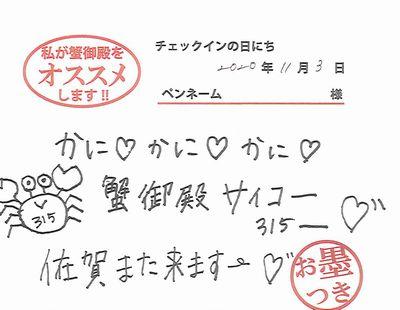 私が蟹御殿を
オススメ
します!!
チェックインの日にち
2020年11月3日
ペンネーム 様
かに♡かに♡かに♡
315
蟹御殿サイコー
315ー♡
佐賀また来ます〜♡
お墨
つき